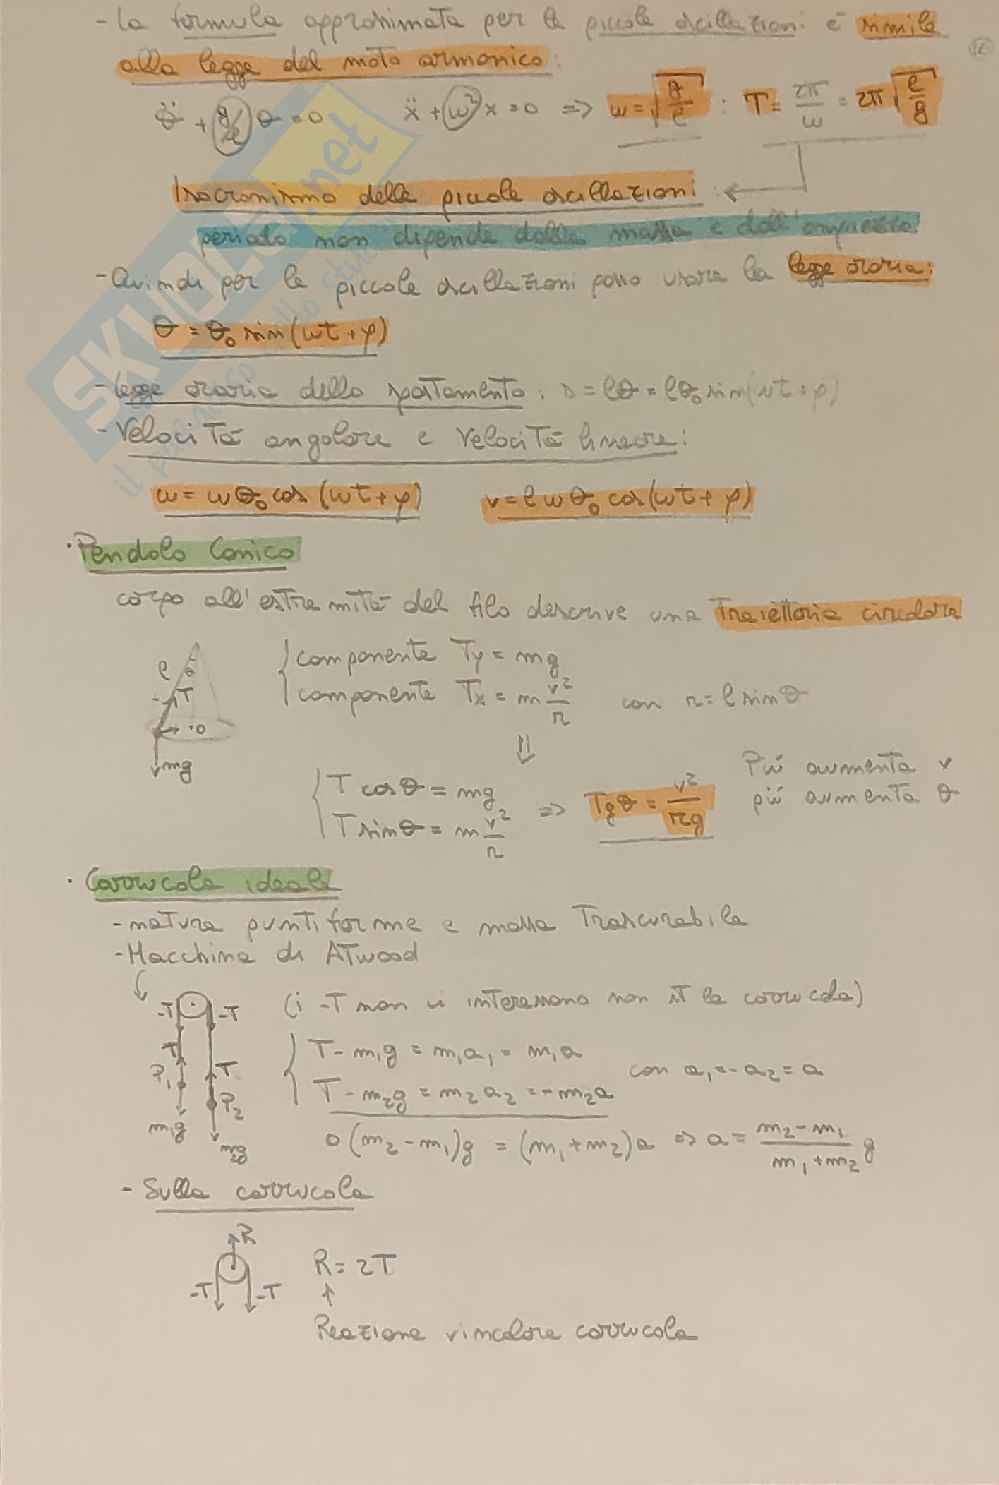 - La formula approssimata per le piccole oscillazioni è simile
alla legge del moto armonico:
θ̈ + g/ℓ θ = 0   ẍ + ω² x = 0 => ω = √(g/ℓ) : T = 2π/ω = 2π √(ℓ/g)
Isocronismo delle piccole oscillazioni:
periodo non dipende dalla massa e dall'ampiezza
- Quindi per le piccole oscillazioni posso usare la legge oraria:
θ = θ₀ sin(ωt + φ)
- legge oraria dello spostamento: s = ℓθ = ℓθ₀ sin(ωt + φ)
- Velocità angolare e velocità lineare:
ω = ωθ₀ cos(ωt + φ)   v = ℓωθ₀ cos(ωt + φ)
· Pendolo Conico
corpo all'estremità del filo descrive una traiettoria circolare
ℓ θ T mg
{ componente Ty = mg
componente Tx = m v²/r con r = ℓ sinθ
⇓
{ T cosθ = mg
T sinθ = m v²/r => Tgθ = v²/rg
Più aumenta v
più aumenta θ
· Carrucola ideale
- natura puntiforme e massa trascurabile
- Macchina di Atwood
(i -T non ci interessano non è la carrucola)
-T -T
T T
P₁ P₂
m₁g m₂g
{ T - m₁g = m₁a₁ = m₁a
T - m₂g = m₂a₂ = -m₂a
con a₁ = -a₂ = a
0 (m₂ - m₁)g = (m₁ + m₂)a => a = m₂ - m₁ / m₁ + m₂ g
- Sulla carrucola
R
-T -T
R = 2T
↑
Reazione vincolare carrucola
SKUOLA.net